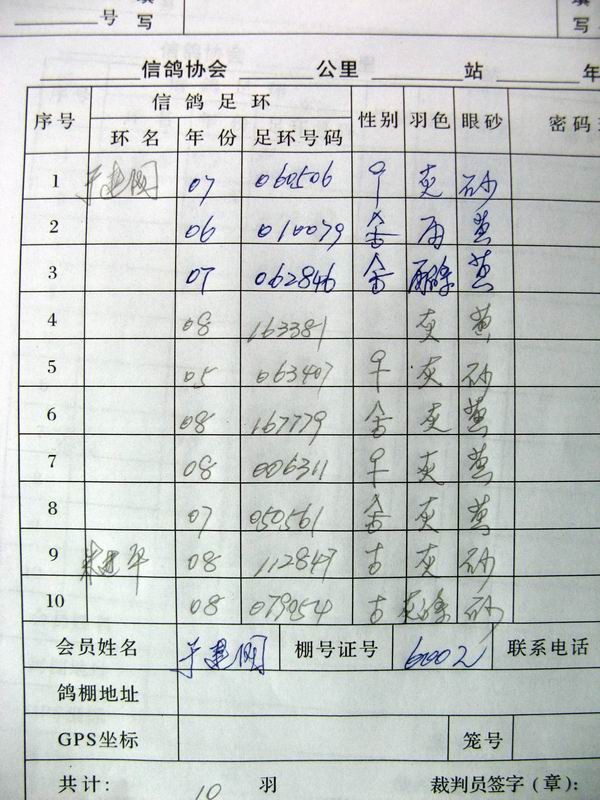 号 填写
填写
信鸽协会 公里 站 年
序号 信鸽足环 性别 羽色 眼砂 密码
环名 年份 足环号码
1 于建网 07 060506 ♀ 灰 砂
2 06 010079 雨 黄
3 07 062846 黄
4 08 163381 灰 黄
5 05 063407 ♀ 灰 砂
6 08 167779 灰 黄
7 08 006311 ♀ 灰 黄
8 07 050561 灰 黄
9 08 112847 灰 砂
10 08 079054 砂
会员姓名 于建网 棚号证号 6002 联系电话
鸽棚地址
GPS坐标 笼号
共计: 10 羽 裁判员签字(章):